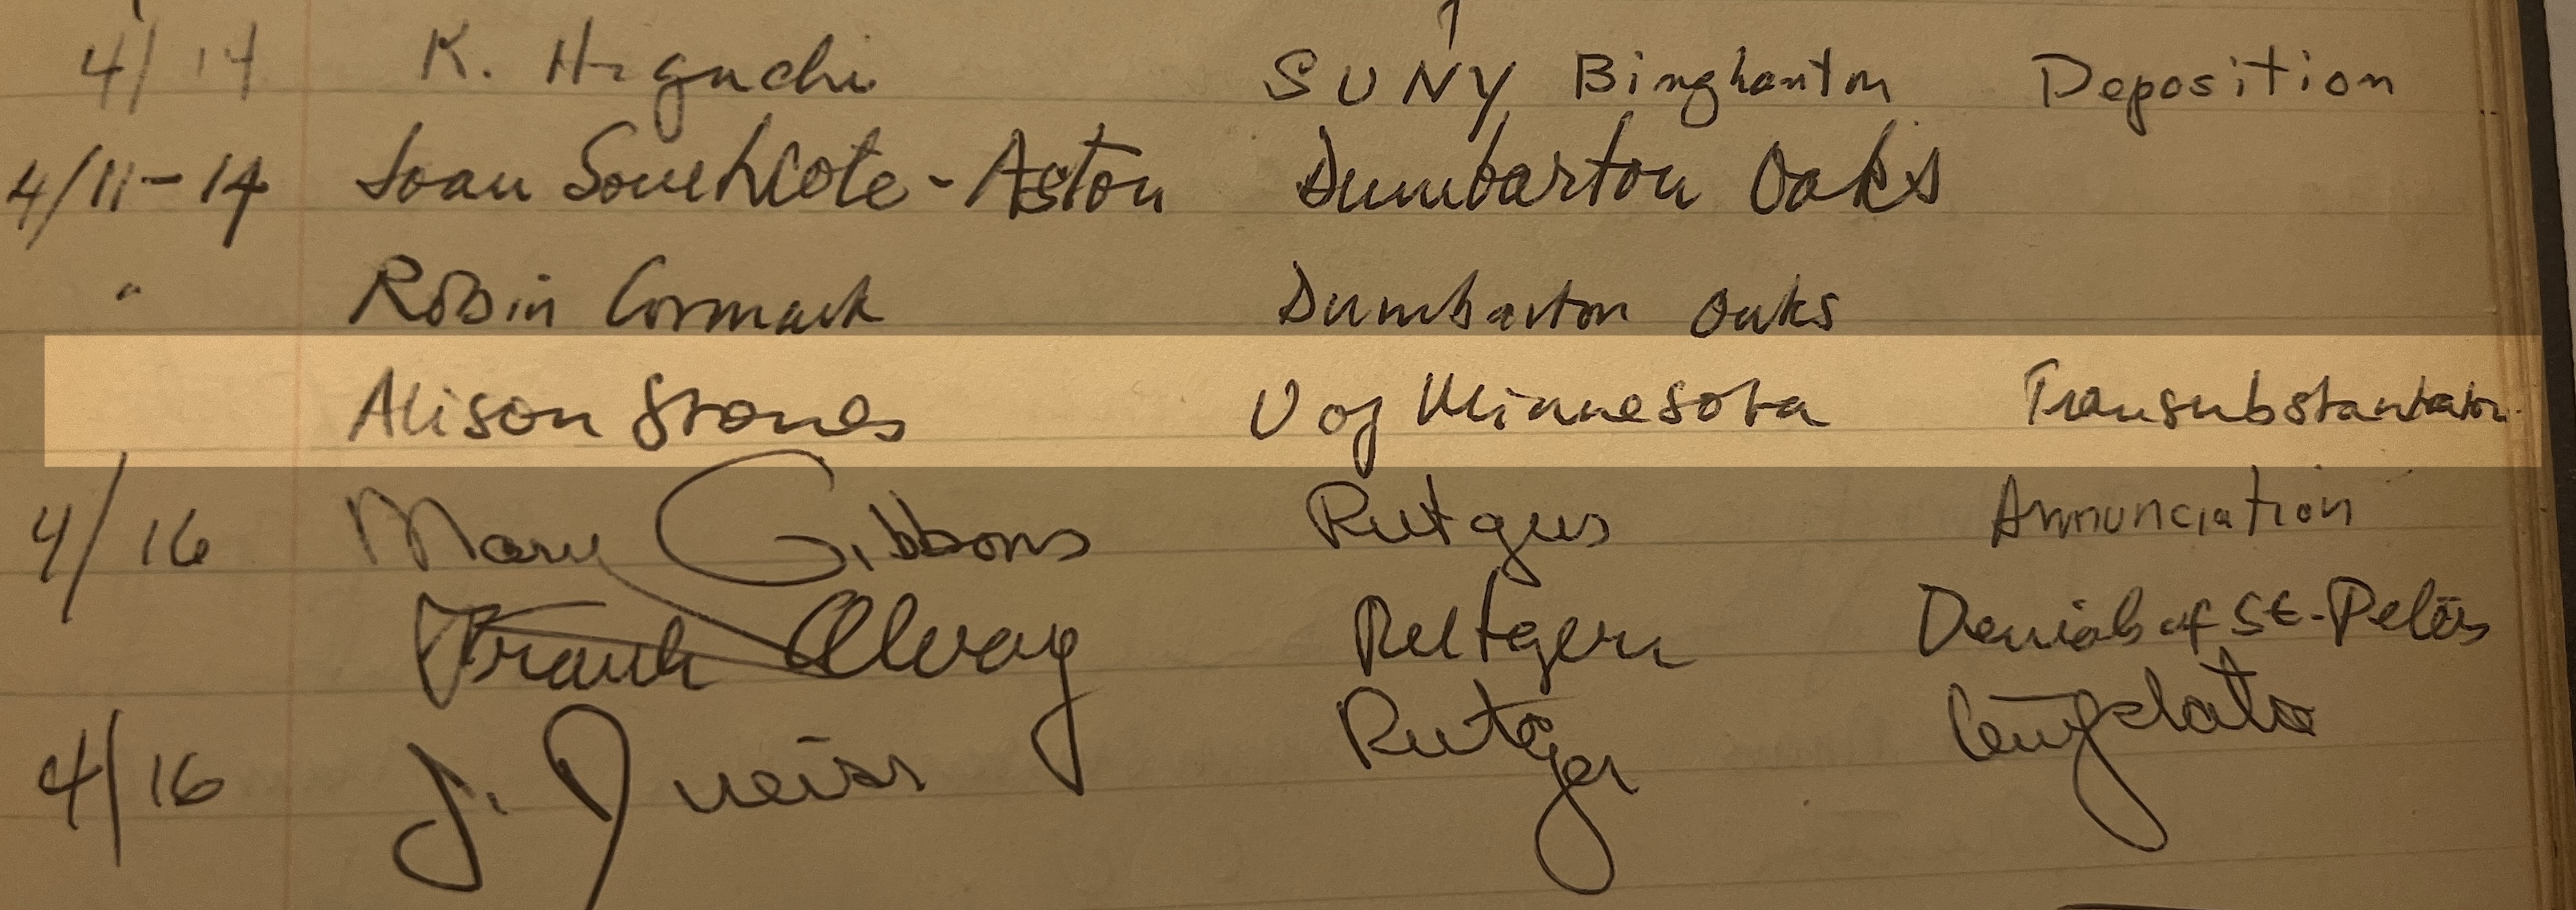 4/14 K. Higuchi SUNY Binghamton Deposition
4/11-14 Joan Southcote-Aston Dumbarton Oaks
" Robin Cormack Dumbarton Oaks
Alison Stones U of Minnesota Transubstantiation
4/16 Mary Gibbons Rutgers Annunciation
Frank Rutgers Denials of St. Peter
4/16 J. Rutgers